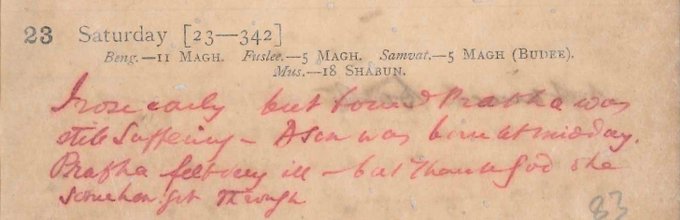 23 Saturday [23—342]
Beng.—11 MAGH. Fuslee.—5 MAGH. Samvat.—5 MAGH (BUDEE).
Mus.—18 SHABUN.
I rose early but found Prabha was
still suffering – A son was born at midday.
Prabha felt very ill – but thank god she
somehow got through
83